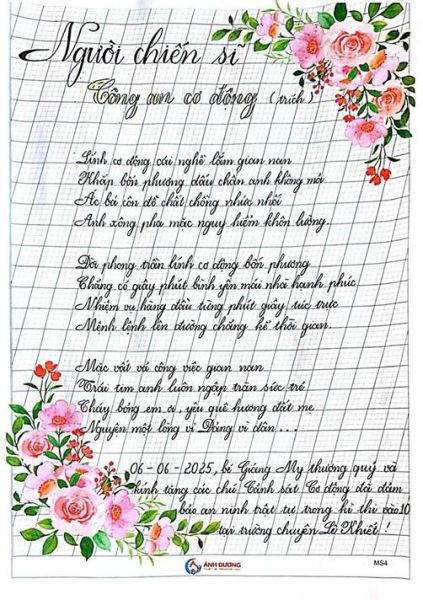 Người chiến sĩ
Công an cơ động (trích)
Lính cơ động cái nghề lắm gian nan
Khắp bốn phương dấu chân anh không mỏi
Ác bá côn đồ chất chồng nhức nhối
Anh xông pha mặc nguy hiểm khôn lường.
Đời phong trần lính cơ động bốn phương
Chẳng có giây phút bình yên mái nhà hạnh phúc
Nhiệm vụ hàng đầu từng phút giây túc trực
Mệnh lệnh lên đường chẳng kể thời gian.
Mặc vất vả công việc gian nan
Trái tim anh luôn ngập tràn sức trẻ
Cháy bỏng em ơi, yêu quê hương đất mẹ
Nguyện một lòng vì Đảng vì dân...
06-06-2025, bé Giáng My thương quý và
kính tặng các chú Cảnh sát Cơ động đã đảm
bảo an ninh trật tự trong kì thi vào 10
tại trường chuyên Lê Khiết!
ÁNH DƯƠNG
MS4